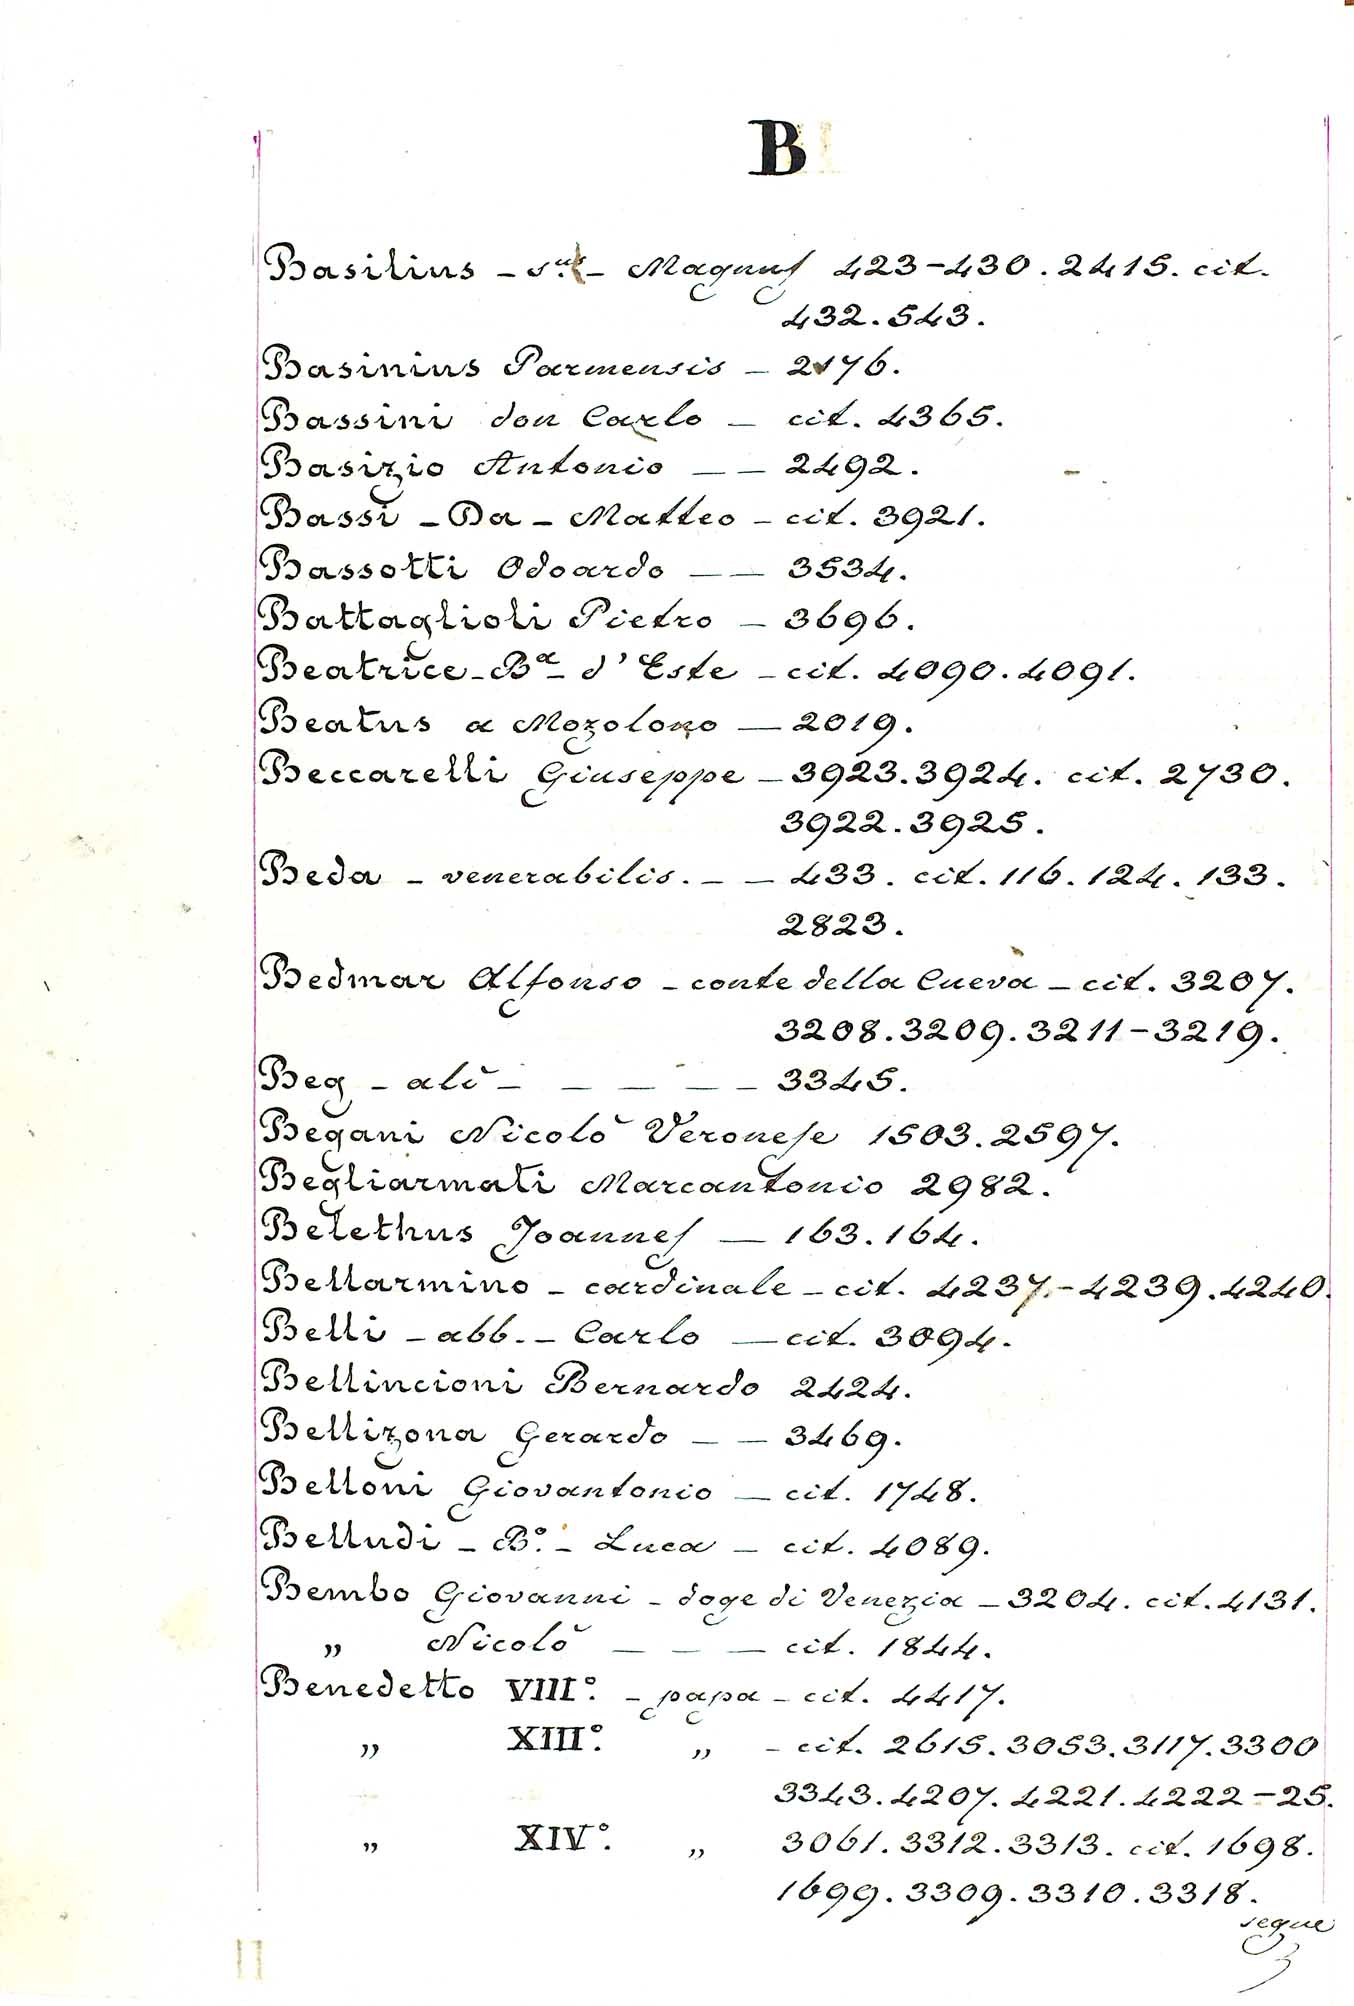 B
Basilius - s.us - Magnus 423-430. 2415. cit.
432. 543.
Basinius Parmensis - 2176.
Bassini don Carlo - cit. 4365.
Basizio Antonio - - 2492.
Bassi - Da - Matteo - cit. 3921.
Bassotti Odoardo - - 3534.
Battaglioli Pietro - 3696.
Beatrice - Ba - d'Este - cit. 4090. 4091.
Beatus a Mozolono - 2019.
Beccarelli Giuseppe - 3923. 3924. cit. 2730.
3922. 3925.
Beda - venerabilis. - - 433. cit. 116. 124. 133.
2823.
Bedmar Alfonso - conte della Cueva - cit. 3207.
3208. 3209. 3211-3219.
Beg - alì - - - - - 3345.
Begani Nicolò Veronese 1503. 2597.
Begliarmati Marcantonio 2982.
Belethus Joannes - 163. 164.
Bellarmino - cardinale - cit. 4237.-4239. 4240.
Belli - abb. - Carlo - cit. 3094.
Bellincioni Bernardo 2424.
Bellizona Gerardo - - 3469.
Belloni Giovantonio - cit. 1748.
Belludi - B.° - Luca - cit. 4089.
Bembo Giovanni - doge di Venezia - 3204. cit. 4131.
„ Nicolò - - - cit. 1844.
Benedetto VIII°. - papa - cit. 4417.
„ XIII°. „ - cit. 2615. 3053. 3117. 3300
3343. 4207. 4221. 4222-25.
„ XIV°. „ 3061. 3312. 3313. cit. 1698.
1699. 3309. 3310. 3318.
segue